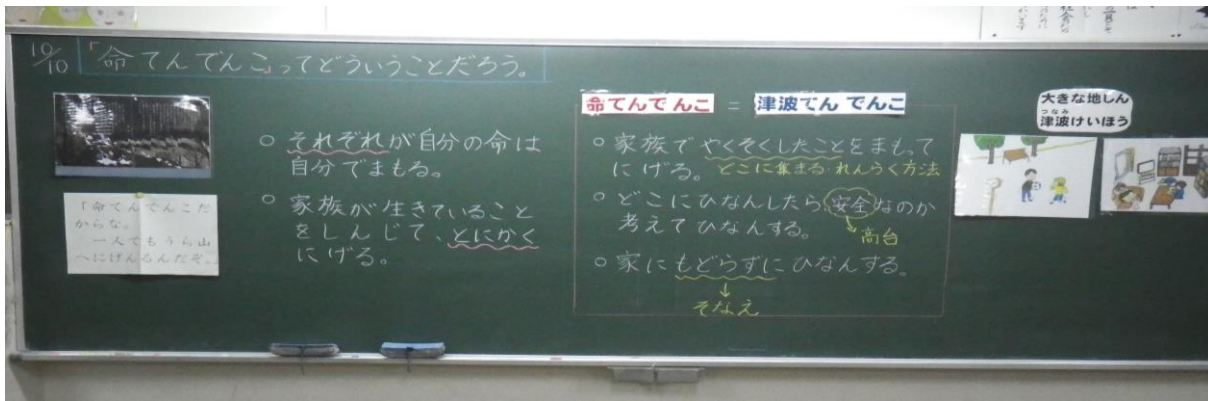 10/10 「命てんでんこ」ってどういうことだろう。
「命てんでんこだ
からな。
一人でもうら山
へにげんるんだぞ。
○ それぞれが自分の命は
自分でまもる。
○ 家族が生きていること
をしんじて、とにかく
にげる。
命てんでんこ = 津波てんでんこ
○ 家族でやくそくしたことをまもって
にげる。 どこに集まる・れんらく方法
○ どこにひなんしたら安全なのか
考えてひなんする。 ↓高台
○ 家にもどらずにひなんする。
↓
そなえ
大きな地しん
つなみ
津波けいほう